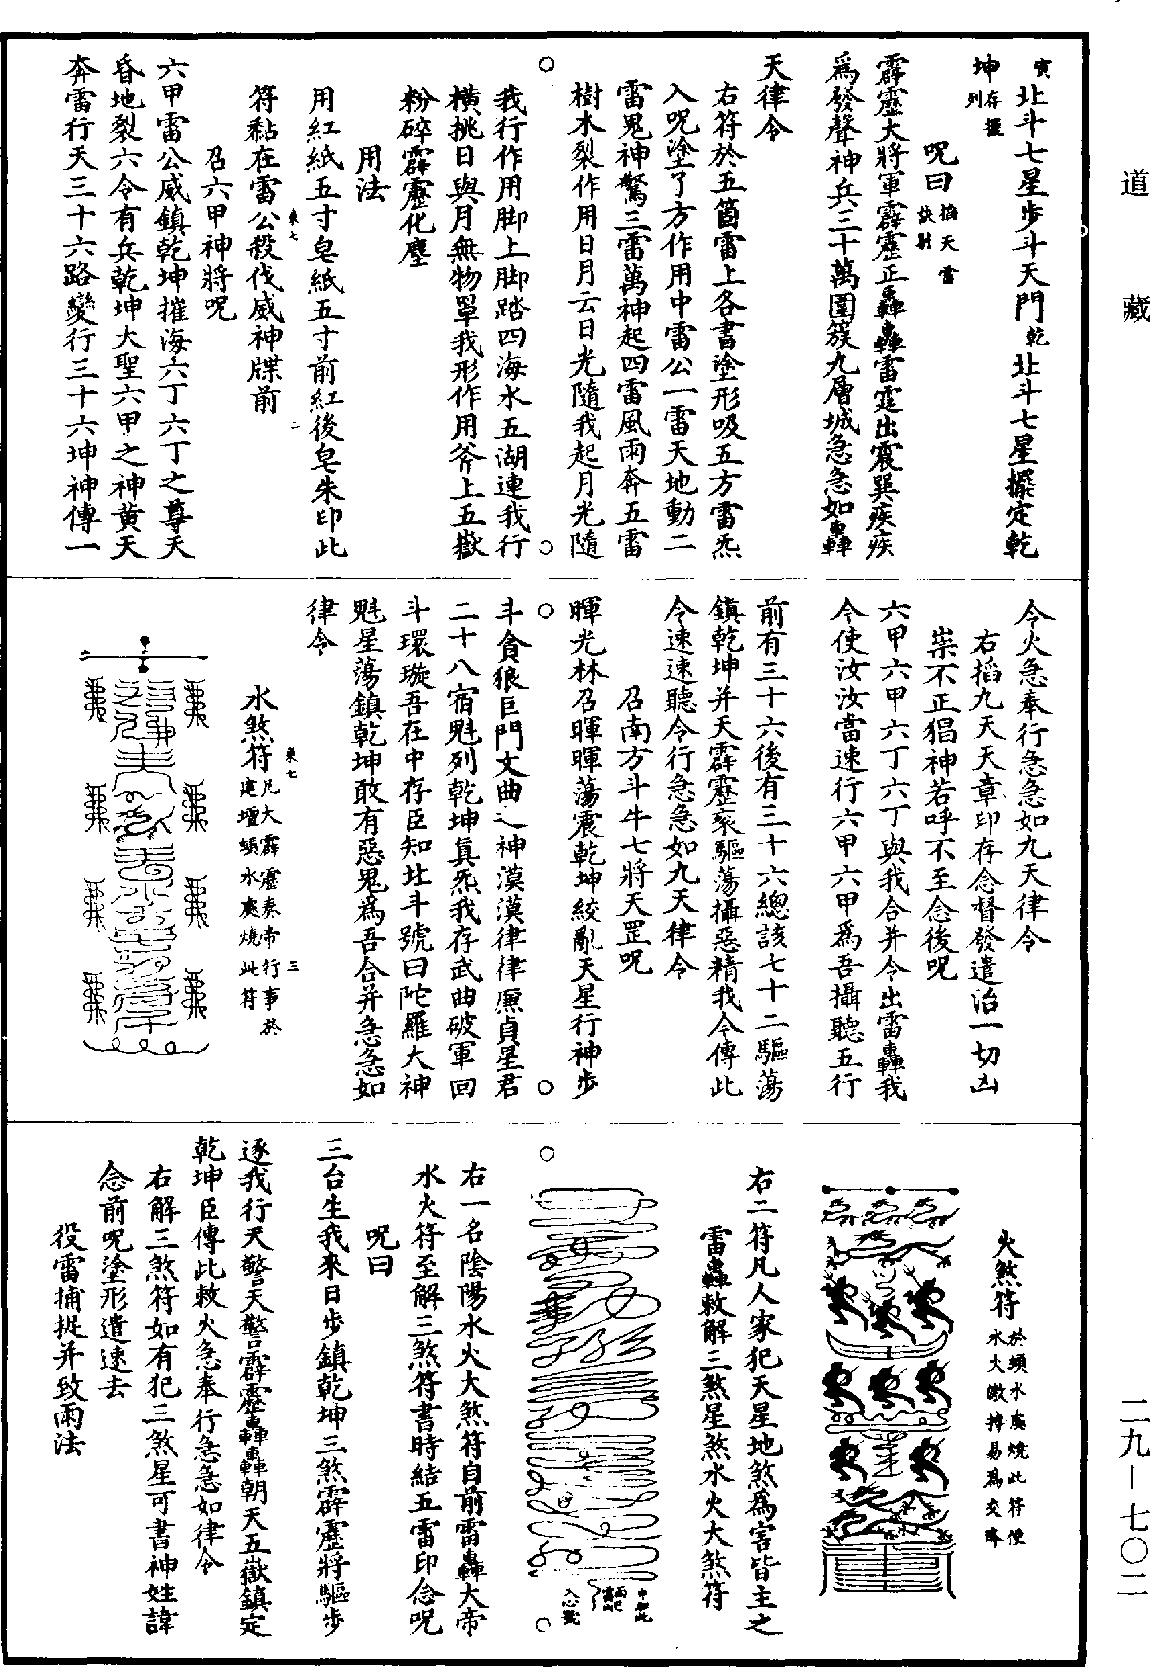 道藏
寅北斗七星步斗天門乾北斗七星攝定乾
坤存擺列
呪曰掐天雷訣射
霹靂大將軍霹靂正轟轟雷霆出震巽疾疾
為發聲神兵三十萬圍簇九層城急急如轟
天律令
右符於五箇雷上各書塗形吸五方雷炁
入呪塗了方作用中雷公一雷天地動二
雷鬼神驚三雷萬神起四雷風雨奔五雷
樹木裂作用日月云日光隨我起月光隨
我行作用脚上脚踏四海水五湖連我行
橫挑日與月無物單我形作用斧上五嶽
粉碎霹靂化塵
用法
用紅紙五寸皂紙五寸前紅後皂朱印此
符黏在雷公殺伐威神牒前
召六甲神將呪
六甲雷公威鎮乾坤摧海六丁六丁之尊天
昏地裂六令有兵乾坤大聖六甲之神黃天
奔雷行天三十六路變行三十六坤神傳一
令火急奉行急急如九天律令
右掐九天天章印存念督發遣治一切凶
祟不正猖神若呼不至念後呪
六甲六甲六丁六丁與我合并令出雷轟我
令使汝汝當速行六甲六甲為吾攝聽五行
前有三十六後有三十六總該七十二驅蕩
鎮乾坤并天霹靂衮驅蕩攝惡精我今傳此
令速速聽令行急急如九天律令
召南方斗牛七將天罡呪
暉光林召暉暉蕩震乾坤絞亂天星行神步
斗貪狼巨門文曲之神漠漠律律廉貞星君
二十八宿魁列乾坤真炁我存武曲破軍回
斗環璇吾在中存臣知北斗號曰陀羅大神
魁星蕩鎮乾坤敢有惡鬼為吾合并急急如
律令
水煞符凡大霹靂奏帝行事於建壇頭水處燒此符
火煞符於頭水處燒此符便水火激搏易為交降
右二符凡人家犯天星地煞為害皆主之
雷轟敕解三煞星煞水火大煞符
右一名陰陽水火大煞符自前雷轟大帝
水火符至解三煞符書時結五雷印念呪
呪曰
三台生我來日步鎮乾坤三煞霹靂將驅步
逐我行天警天警霹靂轟轟朝天五嶽鎮定
乾坤臣傳此敕火急奉行急急如律令
右解三煞符如有犯三煞星可書神姓諱
念前呪塗形遣速去
役雷捕捉并致雨法
二九—七〇二